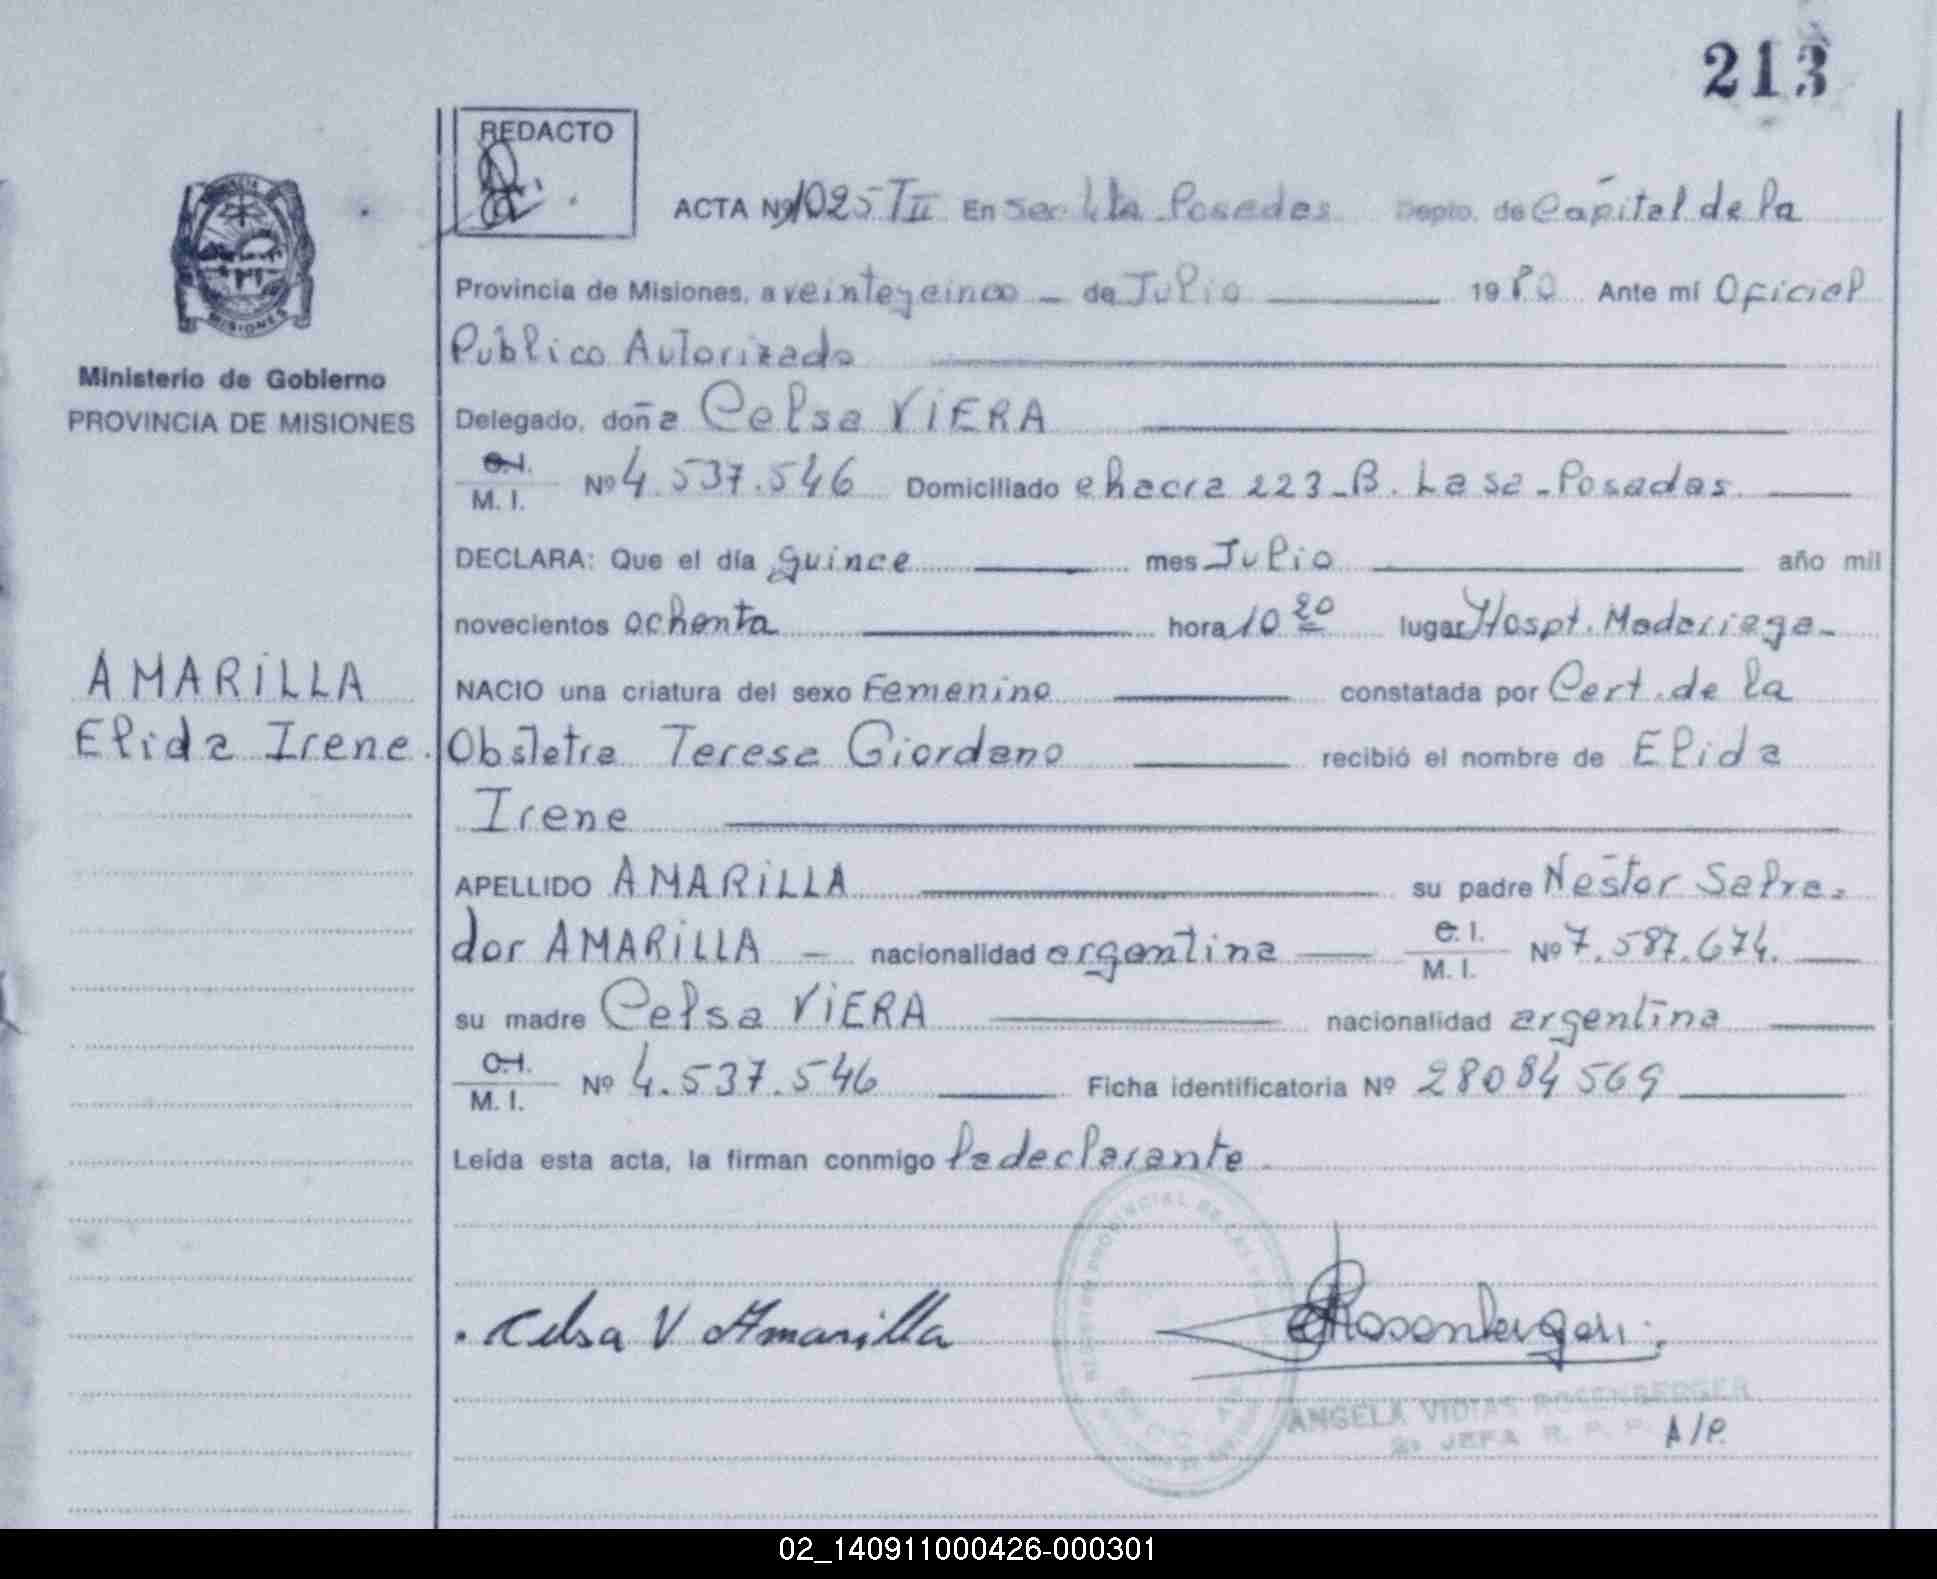 213
REDACTO
ACTA Nº 1025 T II En Sec 4ta Posadas Depto. de Capital de la
Provincia de Misiones, a veinteycinco - de Julio 1980 Ante mí Oficial
Público Autorizado
Ministerio de Gobierno
PROVINCIA DE MISIONES
MISIONES
Delegado, doña Celsa VIERA
C.I. / M. I. Nº 4.537.546 Domiciliado chacra 223-B. Lasa-Posadas.
DECLARA: Que el día quince mes Julio año mil
novecientos ochenta hora 10 20 lugar Hospt. Madariaga-
NACIO una criatura del sexo Femenino constatada por Cert. de la
AMARILLA
Elida Irene.
Obstetra Teresa Giordano recibió el nombre de Elida
Irene
APELLIDO AMARILLA su padre Nestor Salva-
dor AMARILLA - nacionalidad argentina C.I. / M. I. Nº 7.587.674.
su madre Celsa VIERA nacionalidad argentina
C.I. / M. I. Nº 4.537.546 Ficha identificatoria Nº 28084569
Leída esta acta, la firman conmigo la declarante.
Celsa V Amarilla
Rosenberger
ANGELA VIDIAS ROSENBERGER
JEFA R. P. P.
A/P.
02_140911000426-000301